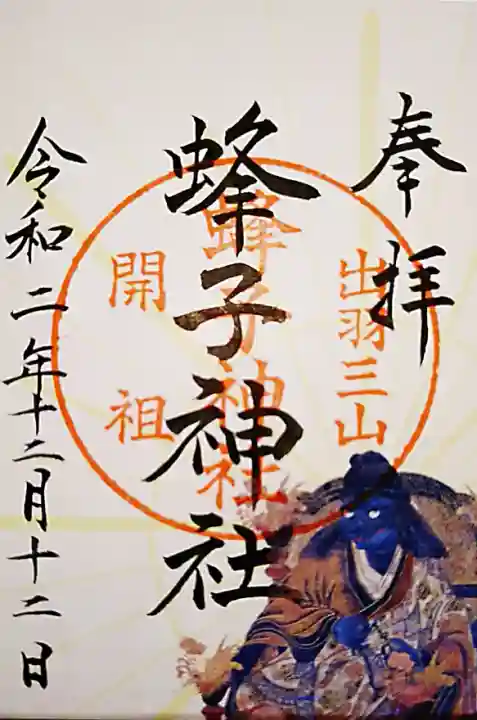 奉拝
出羽三山
蜂子神社
蜂子神社
開祖
令和二年十二月十二日